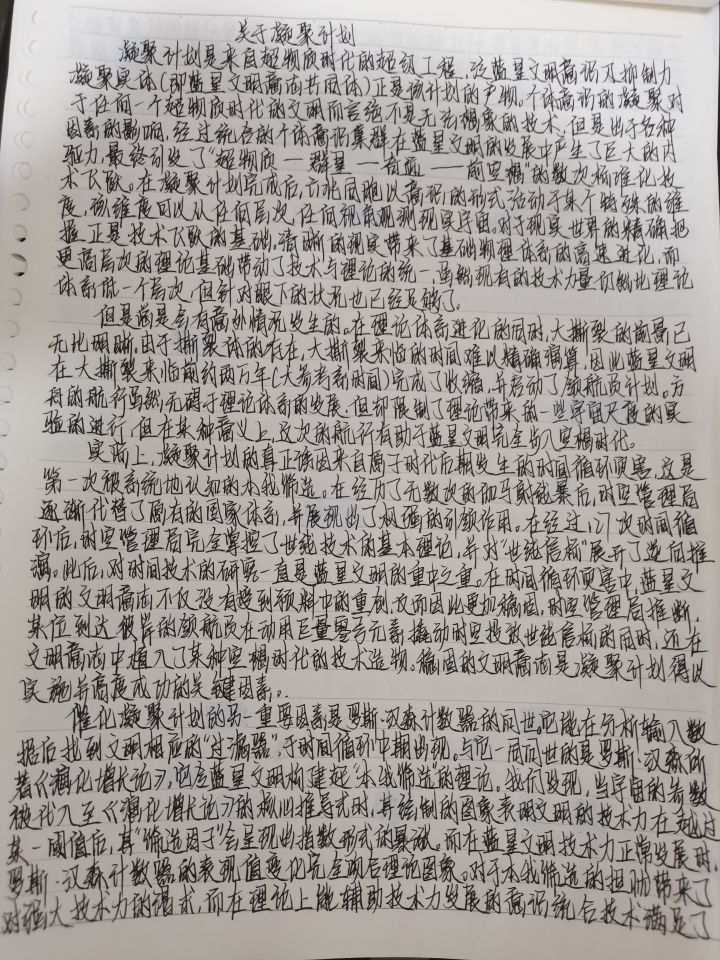 关于凝聚计划
凝聚计划是来自超物质时代的超级工程,泛蓝星文明意识及抑制力
凝聚实体(即蓝星文明意志共同体)正是该计划的产物。个体意识的凝聚对
于任何一个超物质时代的文明而言绝不是无法想象的技术,但是出于各种
因素的影响,经过统合的个体意识集群在蓝星文明的发展中产生了巨大的内
驱力,最终引发了“超物质——群星——奇点——前空想”的数次标准化技
术飞跃。在凝聚计划完成后,六兆同胞以意识的形式活动于某个特殊的维
度,该维度可以从任何层次,任何视角观测现实宇宙。对于现实世界的精确把
握正是技术飞跃的基础,清晰的视界带来了基础物理体系的高速进化,而
更高层次的理论基础带动了技术与理论的统一,虽然现有的技术力量仍然比理论
体系低一个层次,但针对眼下的状况也已经足够了。
但是总是会有意外情况发生的。在理论体系进化的同时,大撕裂的前景已
无比明晰。由于撕裂体的存在,大撕裂来临的时间难以精确预算,因此蓝星文明
在大撕裂来临前约两万年(大参考系时间)完成了收缩,并启动了领航员计划。方
舟的航行虽然无碍于理论体系的发展,但却限制了理论带来的一些宇宙尺度的实
验的进行,但在某种意义上,这次的航行有助于蓝星文明完全步入空想时代。
实际上,凝聚计划的真正诱因来自离子时代后期发生的时间循环灾害,这是
第一次被系统地认知的本我筛选。在经历了无数次的伽马射线暴后,时空管理局
逐渐代替了原有的国家体系,并展现出了极强的引领作用。在经过127次时间循
环后,时空管理局完全掌控了世线技术的基本理论,并对“世线信标”展开了逆向推
演。此后,对时间技术的研究一直是蓝星文明的重中之重。在时间循环灾害中,蓝星文
明的文明意志不仅没有受到预料中的重创,反而因此更加稳固,时空管理局推断,
某位到达彼岸的领航员在动用巨量零号元素撬动时空投放世线信标的同时,还在
文明意志中植入了某种空想时代的技术造物。稳固的文明意志是凝聚计划得以
实施并高度成功的关键因素。
催化凝聚计划的另一重要因素是罗斯·汉森计数器的问世。它能在分析输入数
据后找到文明相应的“过滤器”,于时间循环中期出现。与它一同问世的是罗斯·汉森所
著《演化增长论》,它为蓝星文明构建起“本我筛选”的理论。我们发现,当宇宙的参数
被代入至《演化增长论》的核心推导式时,其绘制的图象表明文明的技术力在越过
某一阈值后,其“筛选因子”会呈现出指数形式的暴涨。而在蓝星文明技术力正常发展时,
罗斯·汉森计数器的表现值变化完全吻合理论图象。对于本我筛选的担忧带来了
对强大技术力的渴求,而在理论上能辅助技术力发展的意识统合技术满足了